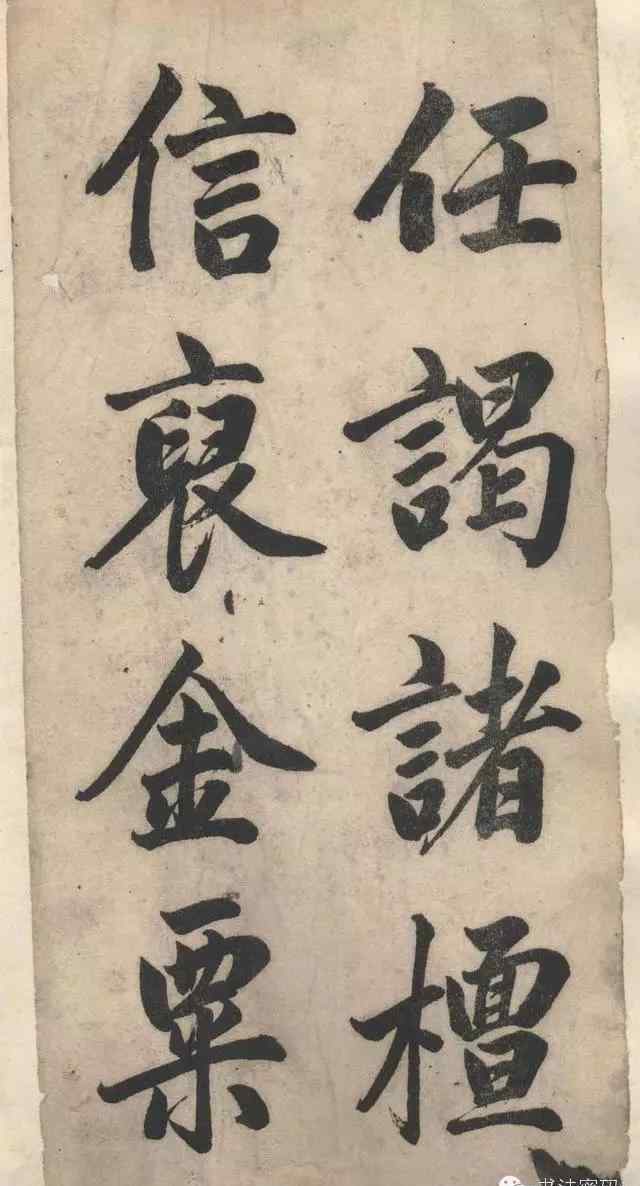 任謁諸檀
信裒金粟
书法密码